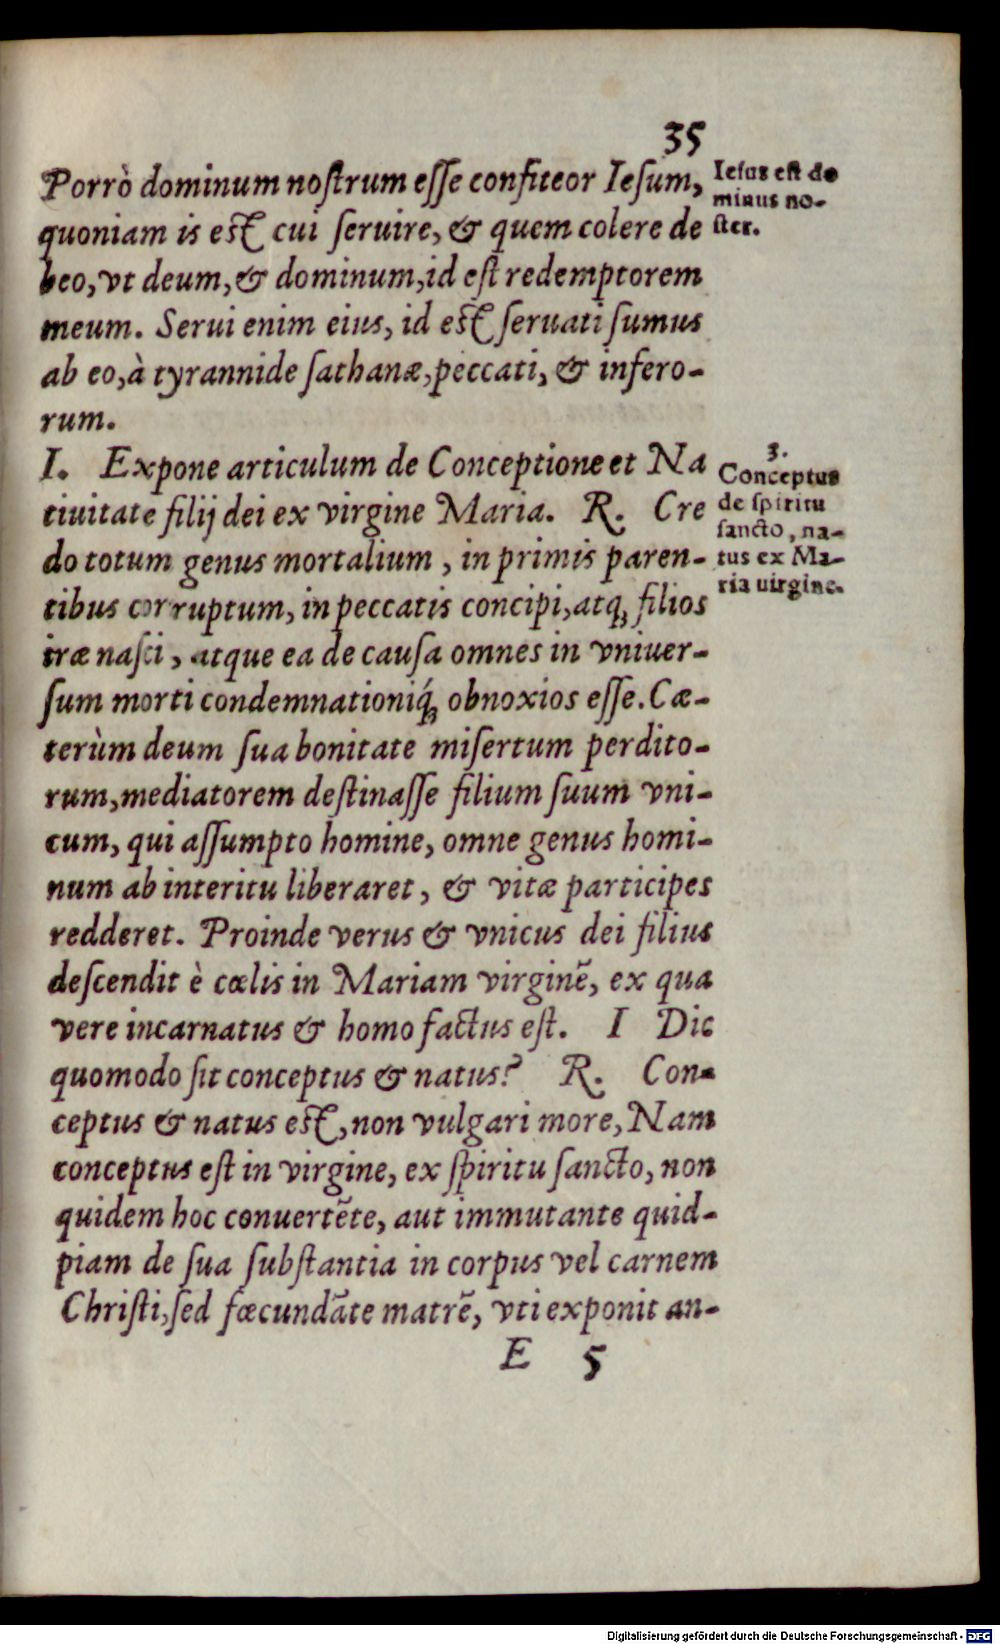 35
Porrò dominum noſtrum eſſe confiteor Ieſum,
quoniam is eſt cui ſeruire, & quem colere de
beo, vt deum, & dominum, id eſt redemptorem
meum. Serui enim eius, id eſt ſeruati ſumus
ab eo, à tyrannide ſathanæ, peccati, & infero-
rum.
Ieſus eſt do
minus no-
ſter.
I. Expone articulum de Conceptione et Na
tiuitate filij dei ex virgine Maria. R. Cre
do totum genus mortalium, in primis paren-
tibus corruptum, in peccatis concipi, atq; filios
iræ naſci, atque ea de cauſa omnes in vniuer-
ſum morti condemnationiq́; obnoxios eſſe. Cæ-
terùm deum ſua bonitate miſertum perdito-
rum, mediatorem deſtinaſſe filium ſuum vni-
cum, qui aſſumpto homine, omne genus homi-
num ab interitu liberaret, & vitæ participes
redderet. Proinde verus & vnicus dei filius
deſcendit è cœlis in Mariam virginẽ, ex qua
vere incarnatus & homo factus eſt. I Dic
quomodo ſit conceptus & natus? R. Con-
ceptus & natus eſt, non vulgari more, Nam
conceptus eſt in virgine, ex ſpiritu ſancto, non
quidem hoc conuertẽte, aut immutante quid-
piam de ſua ſubſtantia in corpus vel carnem
Chriſti, ſed fœcundãte matrẽ, vti exponit an-
3.
Conceptus
de ſpiritu
ſancto, na-
tus ex Ma-
ria uirgine.
E 5
Digitalisierung gefördert durch die Deutsche Forschungsgemeinschaft - DFG